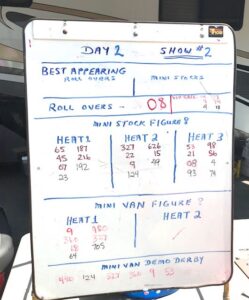 DAY 2 SHOW #2
BEST APPEARING
ROLL OVERS MINI STOCKS
ROLL OVERS - 08
MINI STOCK FIGURE 8
HEAT 1 HEAT 2 HEAT 3
65 187 327 626 53 98
45 216 22 15 21 56
07 192 9 49 08 4
23 124 93 74
MINI VAN FIGURE 8
HEAT 1 HEAT 2
9 980
360 327
18 705
64
MINI VAN DEMO DERBY
124 327 360 9 53